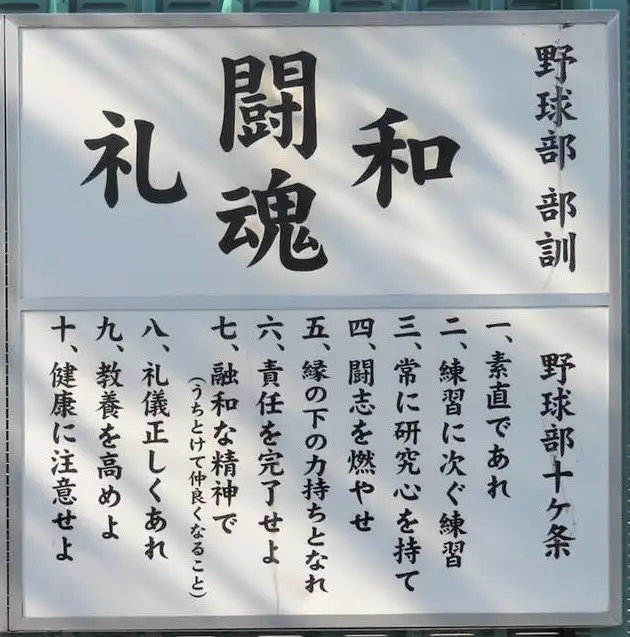 野球部 部訓
和
闘魂
礼
野球部十ヶ条
一、素直であれ
二、練習に次ぐ練習
三、常に研究心を持て
四、闘志を燃やせ
五、縁の下の力持ちとなれ
六、責任を完了せよ
七、融和な精神で
(うちとけて仲良くなること)
八、礼儀正しくあれ
九、教養を高めよ
十、健康に注意せよ